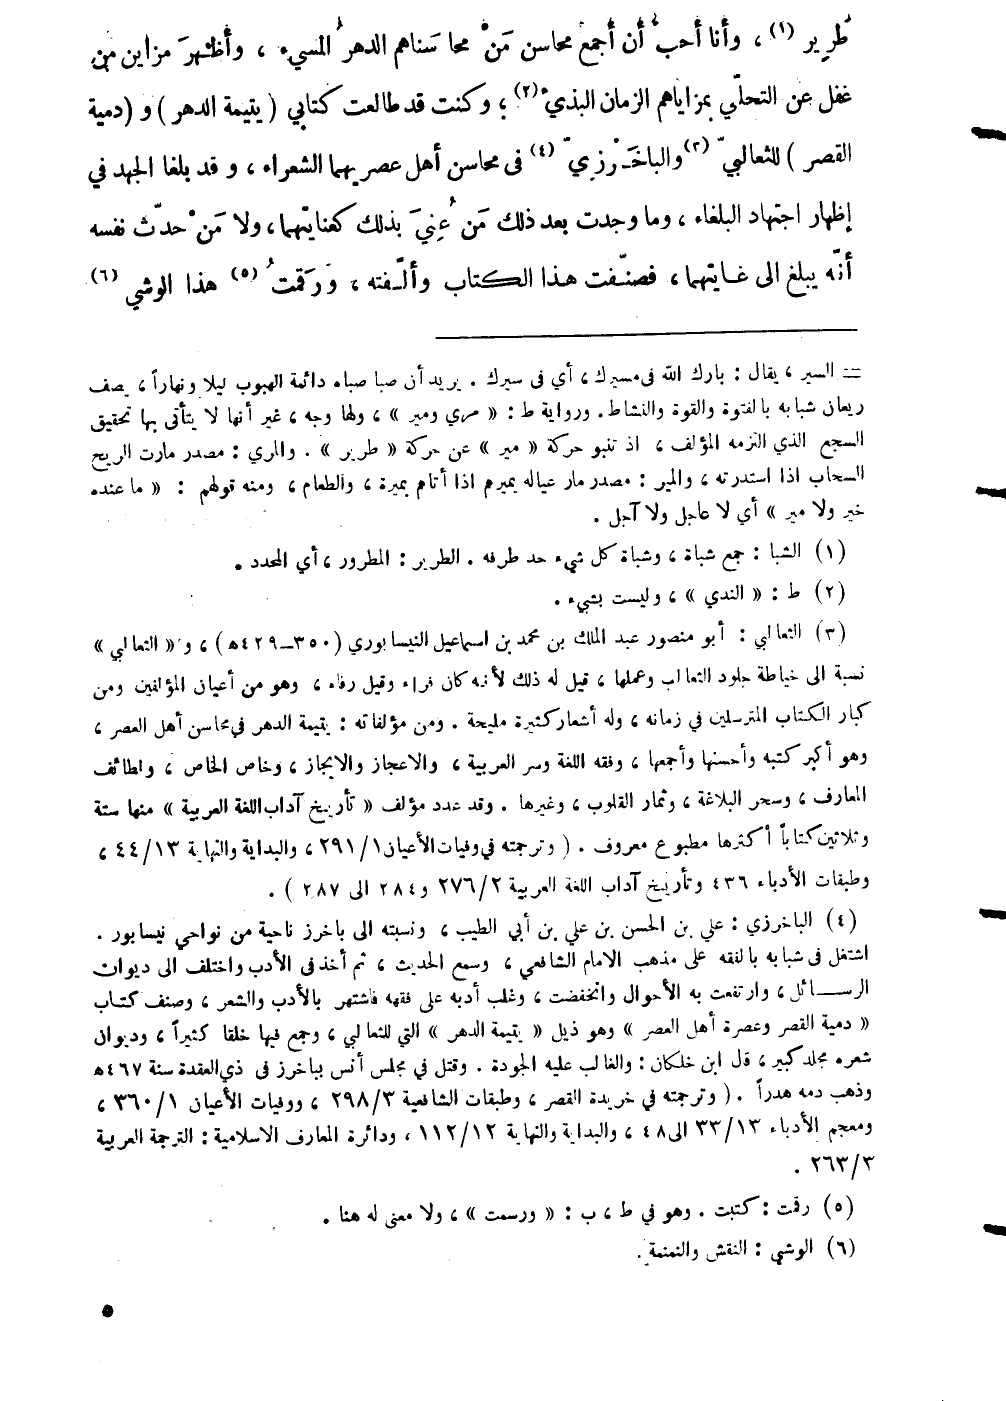 طرير (١) ، وأنا أحب أن أجمع محاسن مَنْ محا سناهم الدهرُ المسيء ، وأظهرَ مزاين من
غفل عن التحلّي بمزاياهم الزمان البذيء (٢) ؛ وكنت قد طالعت كتابي ( يتيمة الدهر ) و (دمية
القصر ) للثعالبيّ (٣) والباخَرْزيّ (٤) فى محاسن أهل عصريهما الشعراء ، و قد بلغا الجهد في
إظهار اجتهاد البلغاء ، وما وجدت بعد ذلك مَن عُنِيَ بذلك كعنايتهما ، ولا مَنْ حدّث نفسه
أنّه يبلغ الى غايتهما ، فصنّفت هذا الكتاب وألّفته ، ورَقمتُ (٥) هذا الوشي (٦)
= السير ، يقال : بارك الله فى مسيرك ، أي فى سيرك . يريد أن صبا صباه دائمة الهبوب ليلا ونهاراً ، يصف
ريعان شبابه بالفتوة والقوة والنشاط . ورواية ط : « مري ومير » ، ولها وجه ، غير أنها لا يتأتى بها تحقيق
السجع الذي التزمه المؤلف ، اذ تنبو حركة « مير » عن حركة « طرير » . والمري : مصدر مارت الريح
السحاب اذا استدرته ، والمير : مصدر مار عياله يميرهم اذا أتاهم بميرة ، والطعام ، ومنه قولهم : « ما عنده
خير ولا مير » أي لا عاجل ولا آجل .
(١) الشبا : جمع شباة ، وشباة كل شيء حد طرفه . الطرير : المطرور ، أي المحدد .
(٢) ط : « الندي » ، وليست بشيء .
(٣) الثعالبي : أبو منصور عبد الملك بن محمد بن اسماعيل النيسابوري (٣٥٠ــ٤٢٩ﻫ) ، و « الثعالبي »
نسبة الى خياطة جلود الثعالب وعملها ، قيل له ذلك لأنه كان فراء وقيل رفاء ، وهو من أعيان المؤلفين ومن
كبار الكتاب المترسلين في زمانه ، وله أشعار كثيرة مليحة . ومن مؤلفاته : يتيمة الدهر في محاسن أهل العصر ،
وهو أكبر كتبه وأحسنها وأجمعها ، وفقه اللغة وسر العربية ، والاعجاز والايجاز ، وخاص الخاص ، ولطائف
المعارف ، وسحر البلاغة ، وثمار القلوب ، وغيرها . وقد عدد مؤلف « تأريخ آداب اللغة العربية » منها ستة
وثلاثين كتاباً أكثرها مطبوع معروف . ( وترجمته في وفيات الأعيان ١/٢٩١ ، والبداية والنهاية ١٣/٤٤ ،
وطبقات الأدباء ٤٣٦ وتأريخ آداب اللغة العربية ٢/٢٧٦ و٢٨٤ الى ٢٨٧ ) .
(٤) الباخرزي : علي بن الحسن بن علي بن أبي الطيب ، ونسبته الى باخرز ناحية من نواحي نيسابور .
اشتغل فى شبابه بالفقه على مذهب الامام الشافعي ، وسمع الحديث ، ثم أخذ فى الأدب واختلف الى ديوان
الرســائل ، وارتفعت به الأحوال وانخفضت ، وغلب أدبه على فقهه فاشتهر بالأدب والشعر ، وصنف كتاب
« دمية القصر وعصرة أهل العصر » وهو ذيل « يتيمة الدهر » التي للثعالبي ، وجمع فيها خلقا كثيراً ، وديوان
شعره مجلد كبير ، قال ابن خلكان : والغالب عليه الجودة . وقتل في مجلس أنس بباخرز فى ذي القعدة سنة ٤٦٧ﻫ
وذهب دمه هدراً . ( وترجمته في خريدة القصر ، وطبقات الشافعية ٣/٢٩٨ ، ووفيات الأعيان ١/٣٦٠ ،
ومعجم الأدباء ١٣/٣٣ الى ٤٨ ، والبداية والنهاية ١٢/١١٢ ، ودائرة المعارف الاسلامية : الترجمة العربية
٣/٢٦٣ .
(٥) رقمت : كتبت . وهو في ط ، ب : « ورسمت » ، ولا معنى له هنا .
(٦) الوشي : النقش والنمنمة .
٥